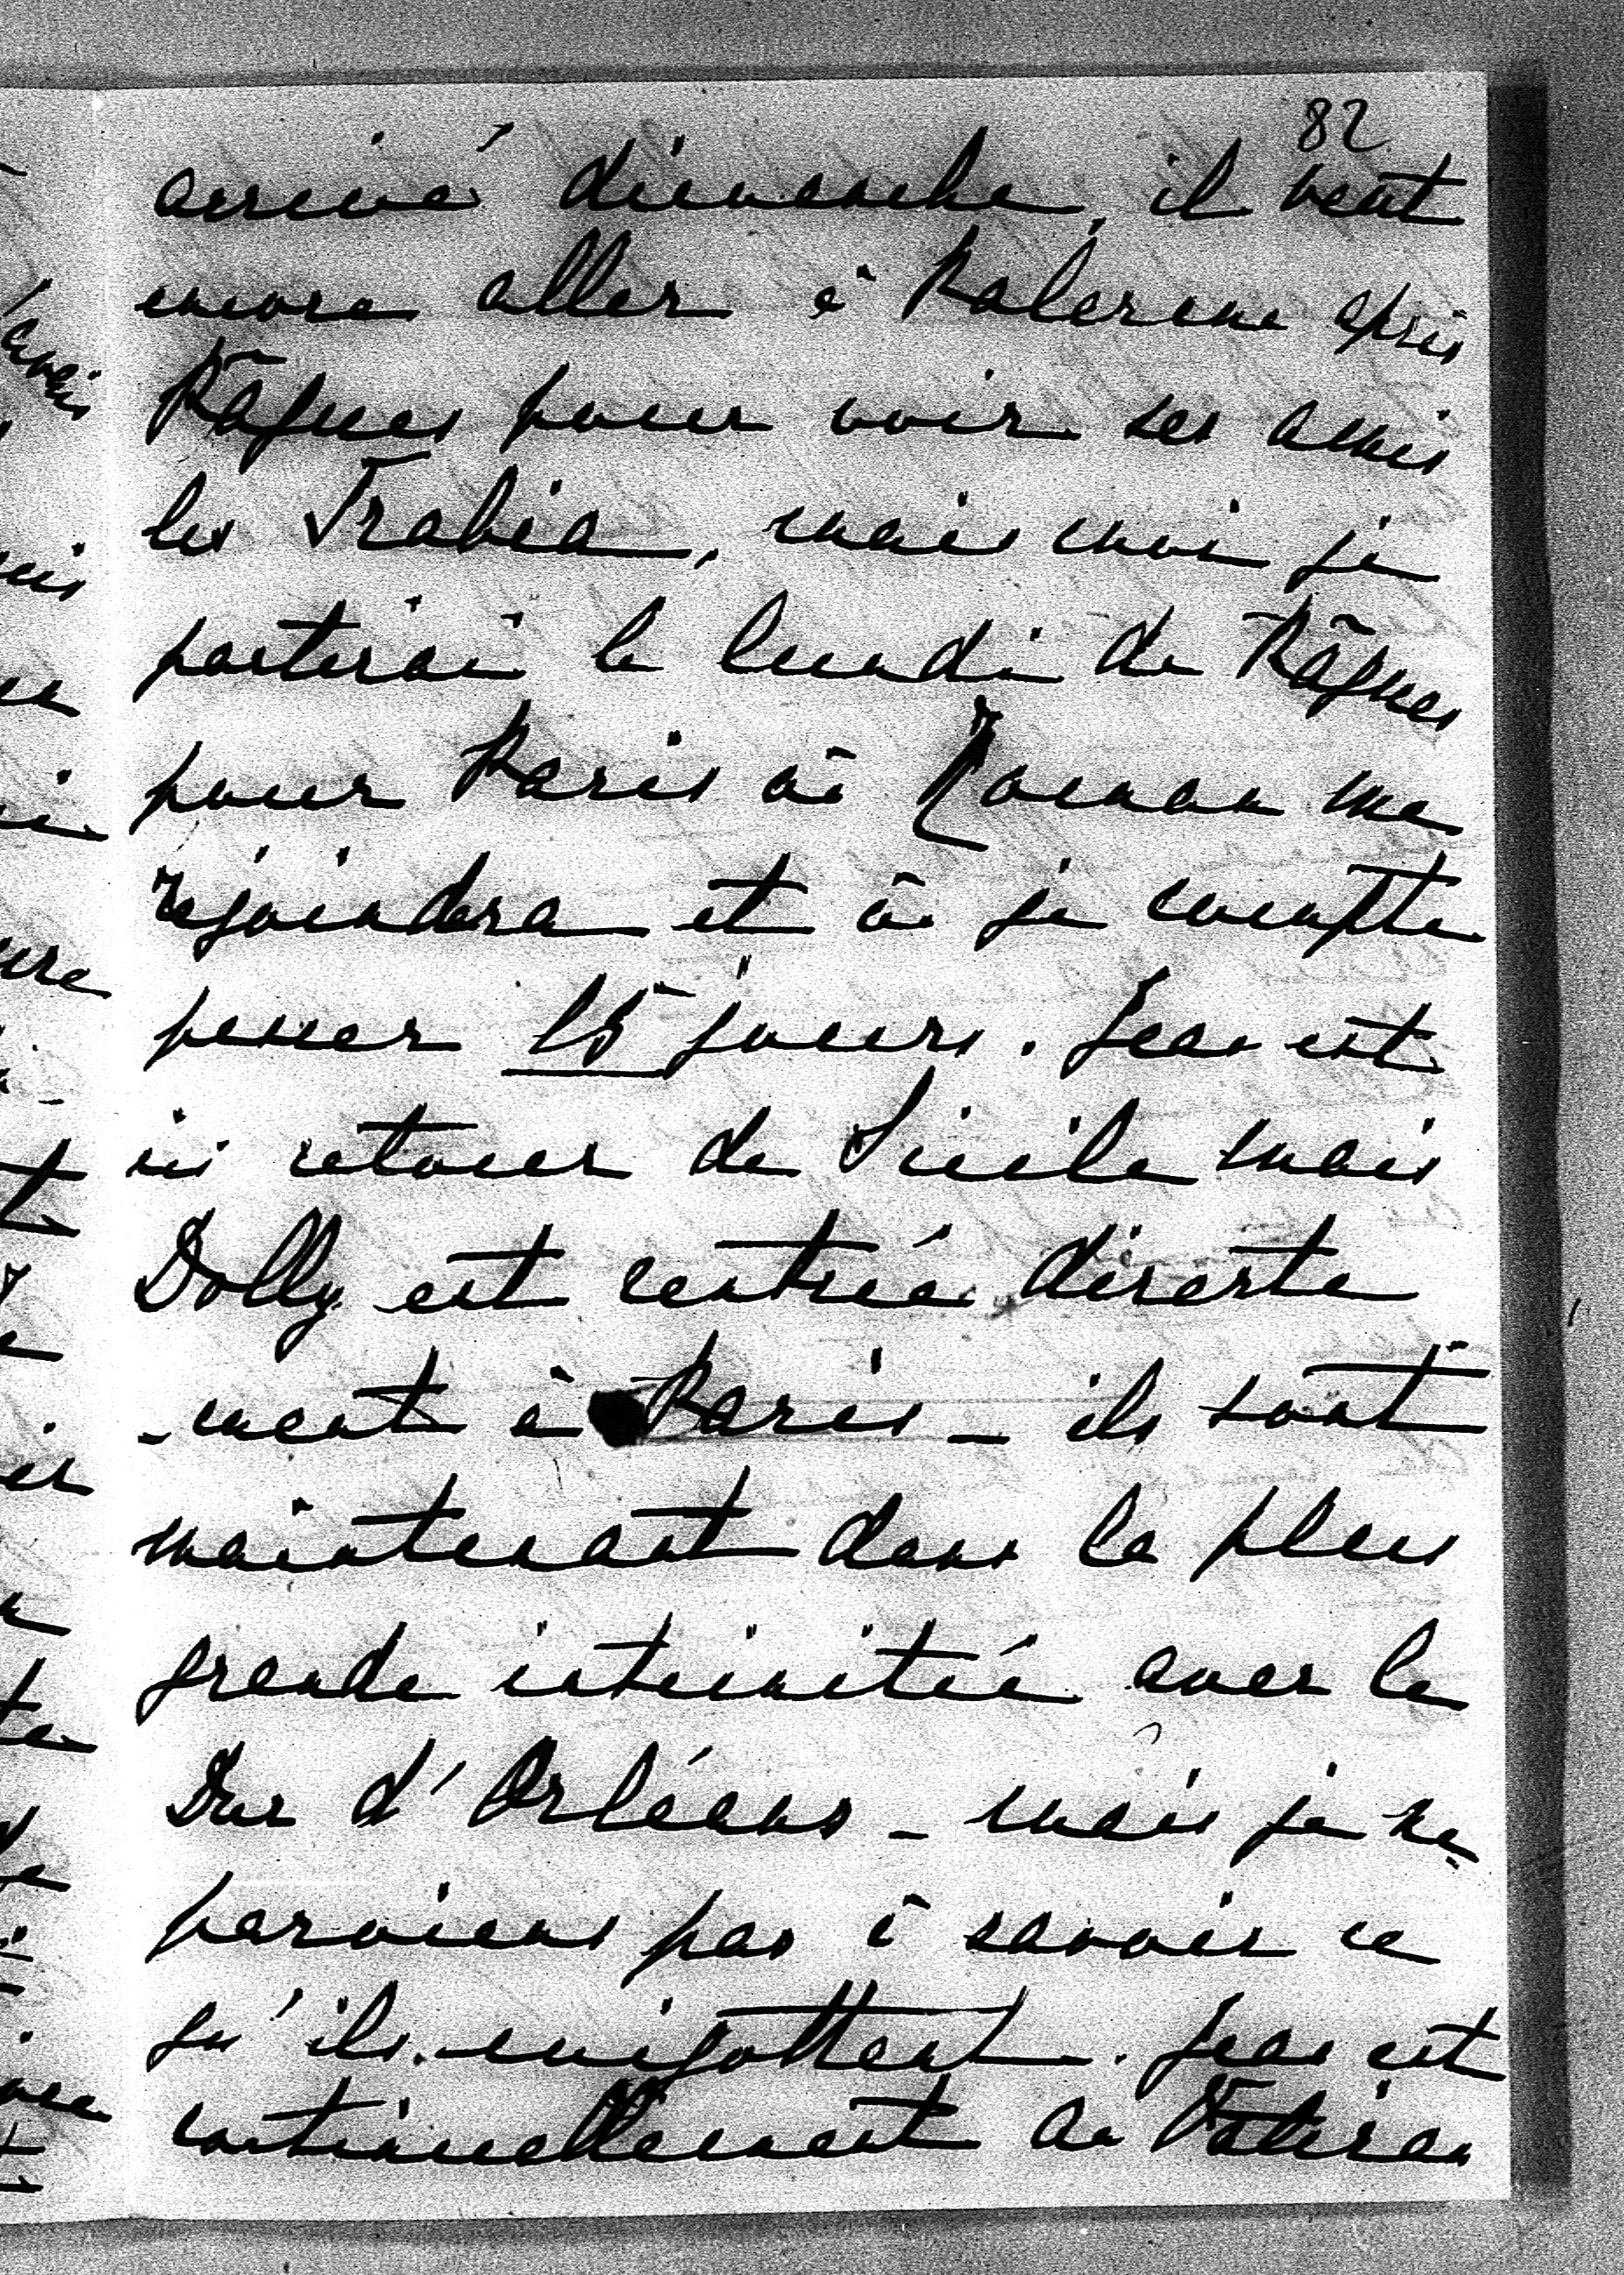 82
arrivé dimanche, il veut
encore aller à Palerme après
Pâques pour voir ses amis
les Trabia, mais moi je
partirai le lundi de Pâques
pour Paris où me
rejoindra et où je compte
passer 15 jours. Jean est
ici retour de Sicile mais
Dolly est rentrée directe
-ment à Paris - ils sont
maintenant dans la plus
grande intimitée avec le
Duc d'Orléans - mais je ne
parviens pas à savoir ce
qu'ils mijottent. Jean est
continuellement au Vatican